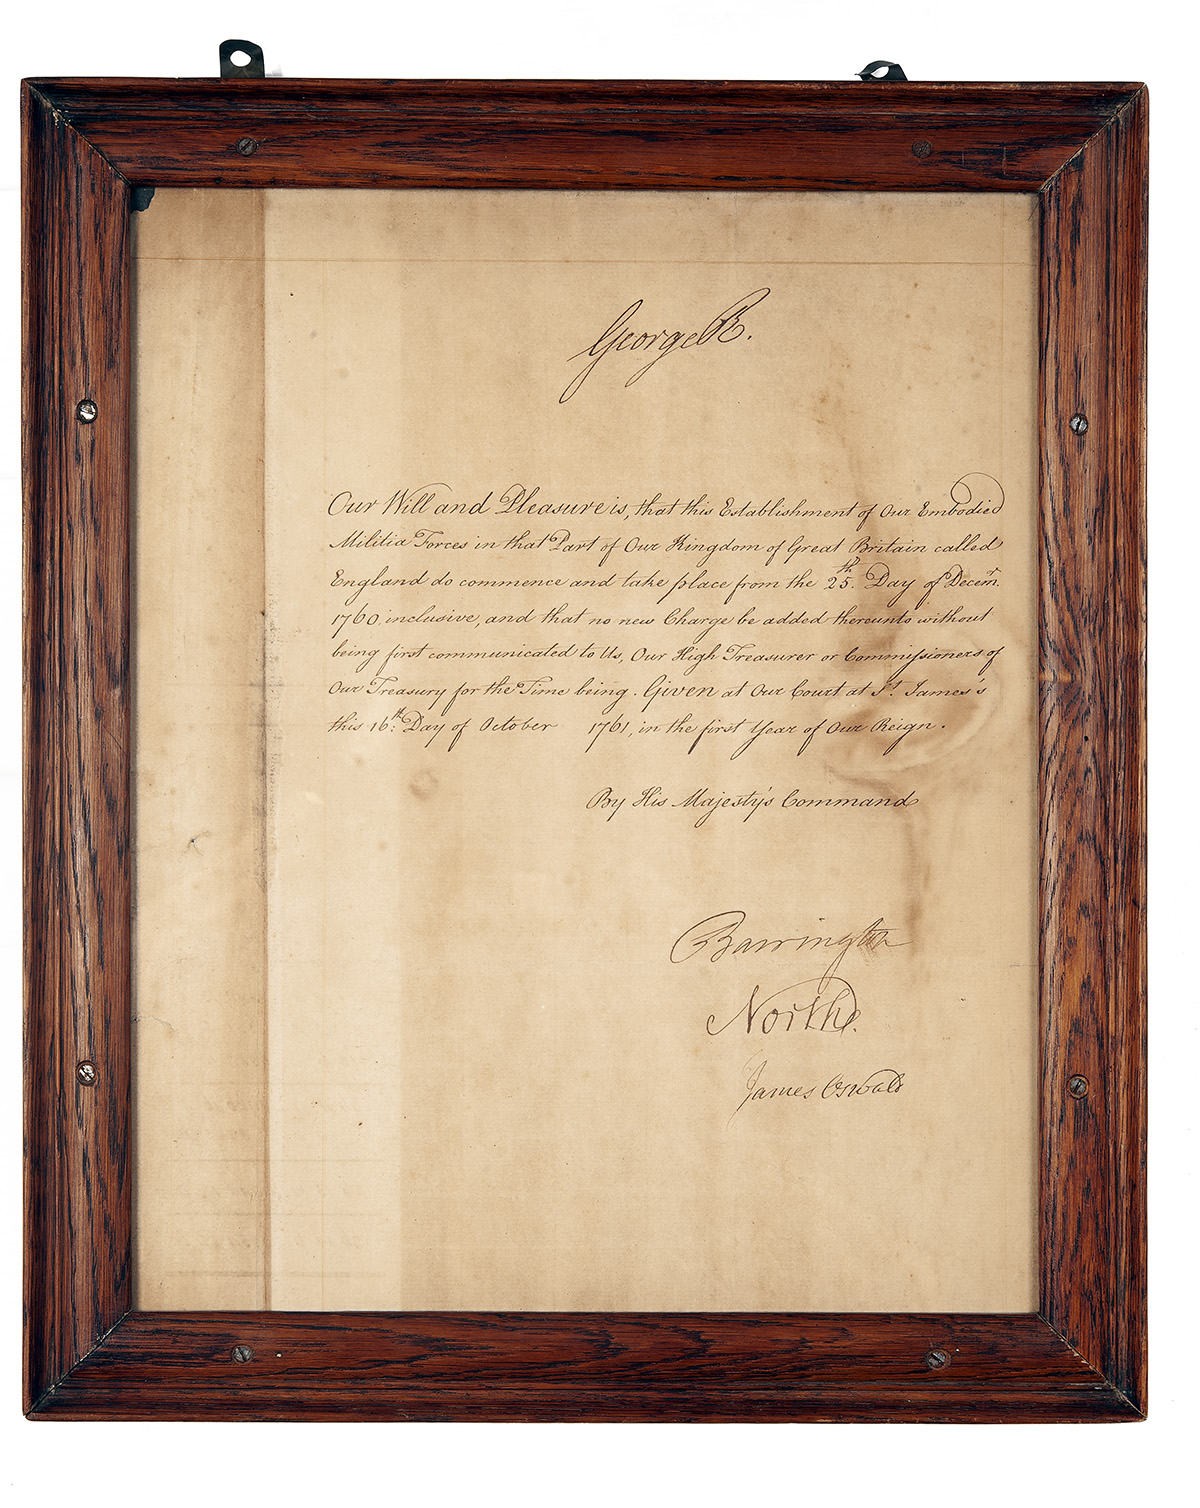 George R.
Our Will and Pleasure is, that this Establishment of Our Embodied
Militia Forces in that Part of Our Kingdom of Great Britain called
England do commence and take place from the 25.th Day of Decem.r
1760, inclusive, and that no new Charge be added thereunto without
being first communicated to Us, Our High Treasurer or Commissioners of
Our Treasury for the Time being. Given at Our Court at St. James's
this 16.th Day of October 1761, in the first Year of Our Reign.
By His Majesty's Command
Barrington
North.
James Oswald